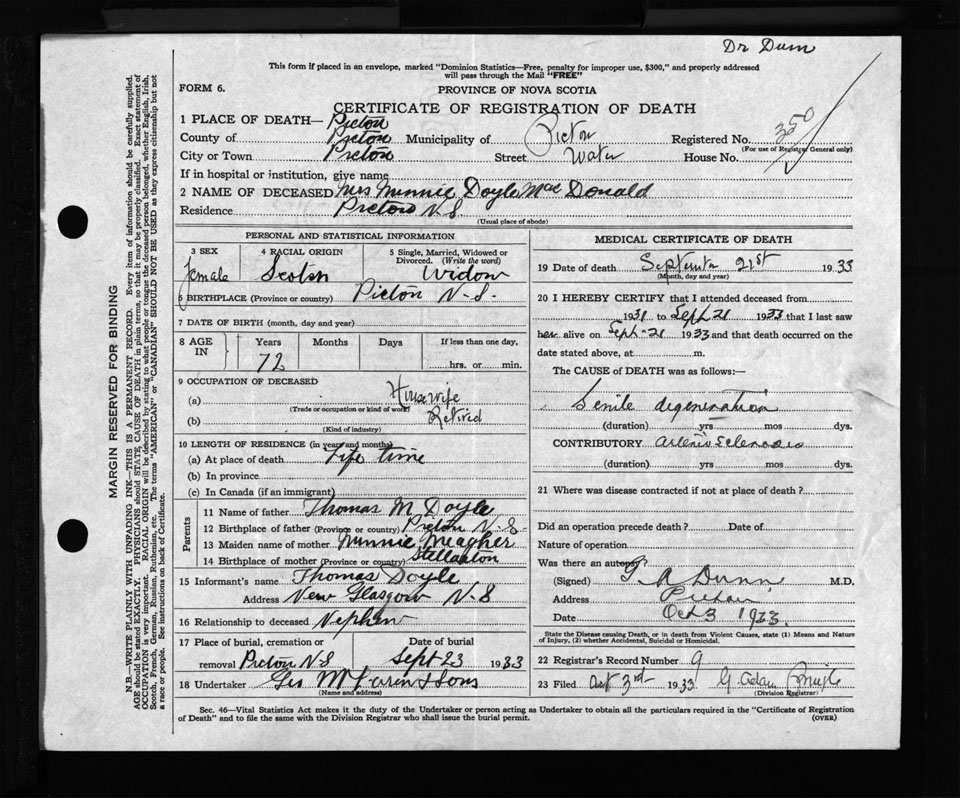 Dr Dunn
This form if placed in an envelope, marked "Dominion Statistics—Free, penalty for improper use, $300," and properly addressed
will pass through the Mail "FREE"
FORM 6.
PROVINCE OF NOVA SCOTIA
CERTIFICATE OF REGISTRATION OF DEATH
350
1 PLACE OF DEATH— Pictou
County of Pictou Municipality of Pictou Registered No.
(For use of Registrar General only)
City or Town Pictou Street Water House No.
If in hospital or institution, give name
2 NAME OF DECEASED Mrs Minnie Doyle MacDonald
Residence Pictou N.S.
(Usual place of abode)
PERSONAL AND STATISTICAL INFORMATION
3 SEX 4 RACIAL ORIGIN 5 Single, Married, Widowed or
Divorced. (Write the word)
female Scotch Widow
6 BIRTHPLACE (Province or country) Pictou N.S.
7 DATE OF BIRTH (month, day and year)
8 AGE IN Years Months Days If less than one day,
72 hrs. or min.
9 OCCUPATION OF DECEASED
(a) Housewife
(Trade or occupation or kind of work)
(b) Retired
(Kind of industry)
10 LENGTH OF RESIDENCE (in years and months)
(a) At place of death Life time
(b) In province
(c) In Canada (if an immigrant)
Parents
11 Name of father Thomas M Doyle
12 Birthplace of father (Province or country) Pictou N.S
13 Maiden name of mother Minnie Meagher
14 Birthplace of mother (Province or country) Stellarton
15 Informant's name Thomas Doyle
Address New Glasgow N.S
16 Relationship to deceased Nephew
17 Place of burial, cremation or Date of burial
removal Pictou N.S Sept 23 1933
18 Undertaker Geo & Sons
(Name and address)
MEDICAL CERTIFICATE OF DEATH
19 Date of death September 21st 1933
(Month, day and year)
20 I HEREBY CERTIFY that I attended deceased from
1931 to Sept 21 1933 that I last saw
her alive on Sept. 21 1933 and that death occurred on the
date stated above, at m.
The CAUSE of DEATH was as follows:
Senile degeneration
(duration) yrs mos dys.
CONTRIBUTORY arterio sclerosis
(duration) yrs mos dys.
21 Where was disease contracted if not at place of death?
Did an operation precede death? Date of
Nature of operation
Was there an autopsy?
(Signed) G A Dunn M.D.
Address Pictou
Date Oct 3 1933.
State the Disease causing Death, or in death from Violent Causes, state (1) Means and Nature
of Injury, (2) whether Accidental, Suicidal or Homicidal.
22 Registrar's Record Number 9
23 Filed Oct 3rd 1933 G.
(Division Registrar)
Sec. 46—Vital Statistics Act makes it the duty of the Undertaker or person acting as Undertaker to obtain all the particulars required in the "Certificate of Registration
of Death" and to file the same with the Division Registrar who shall issue the burial permit. (OVER)
MARGIN RESERVED FOR BINDING
N.B.—WRITE PLAINLY WITH UNFADING INK—THIS IS A PERMANENT RECORD. Every item of information should be carefully supplied.
AGE should be stated EXACTLY. PHYSICIANS should STATE CAUSE OF DEATH in plain terms, so that it may be properly classified. Exact statement of
OCCUPATION is very important. RACIAL ORIGIN will be described by stating to what people or tongue the deceased person belonged, whether English, Irish,
Scotch, French, German, Russian, Ruthenian, etc. The terms "AMERICAN" or "CANADIAN" SHOULD NOT BE USED as they express citizenship but not
a race or people. See instructions on back of Certificate.